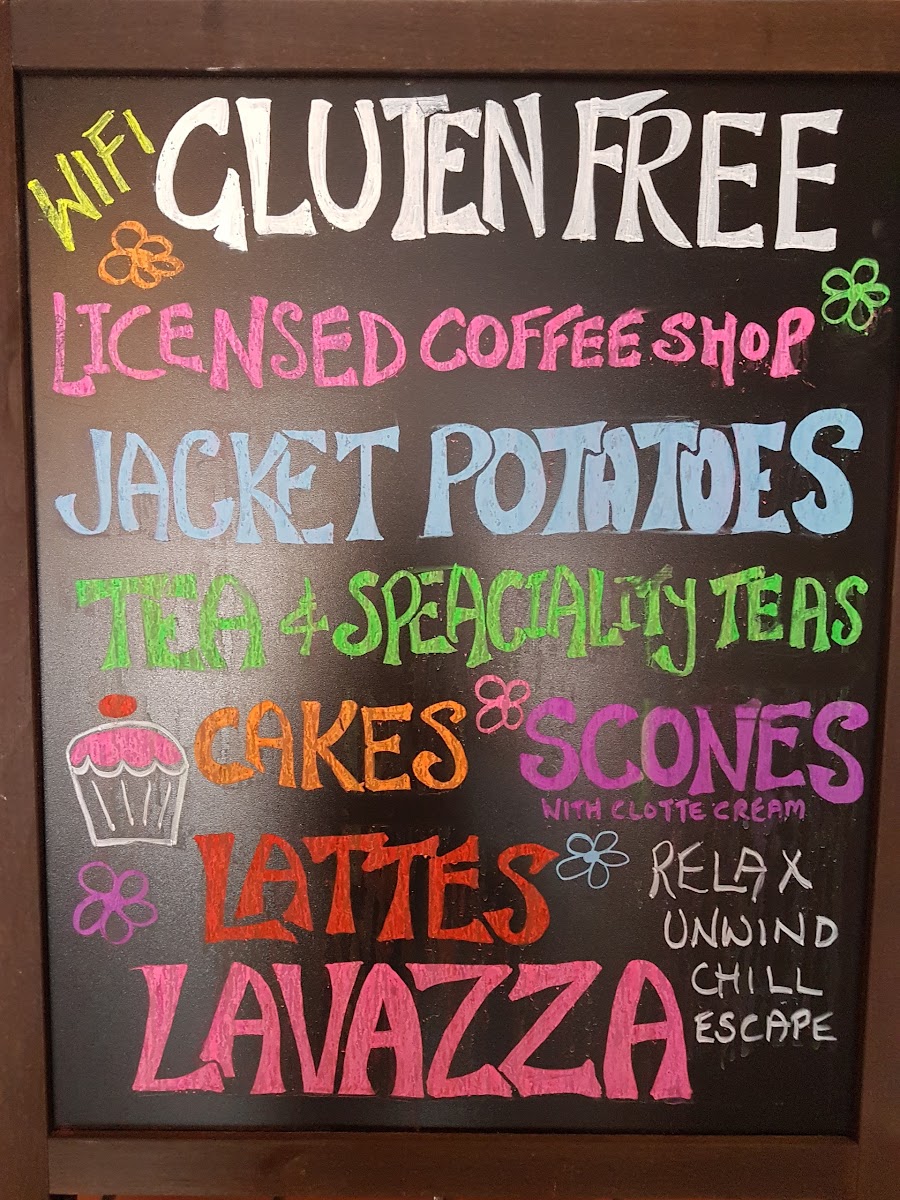 WIFI GLUTEN FREE
LICENSED COFFEE SHOP
JACKET POTATOES
TEA & SPEACIALITY TEAS
CAKES SCONES
WITH CLOTTE CREAM
LATTES
LAVAZZA
RELAX
UNWIND
CHILL
ESCAPE